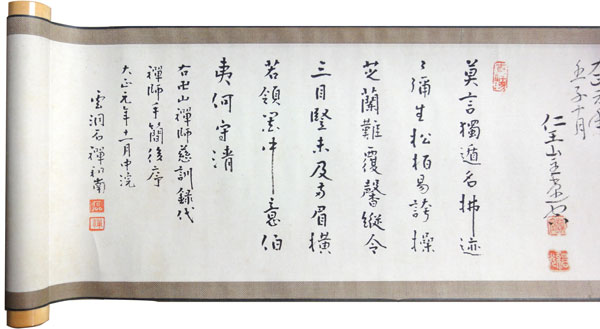 壬子十月
仁王山主
莫言獨遁名拂迹
々彌生松栢易誇操
芝蘭難覆馨縱令
三目竪未及両眉横
若領箇中意伯
夷何守清
右卍山禪師慈訓録代
禪師手簡後序
大正元年十一月中浣
雲洞石禪和南